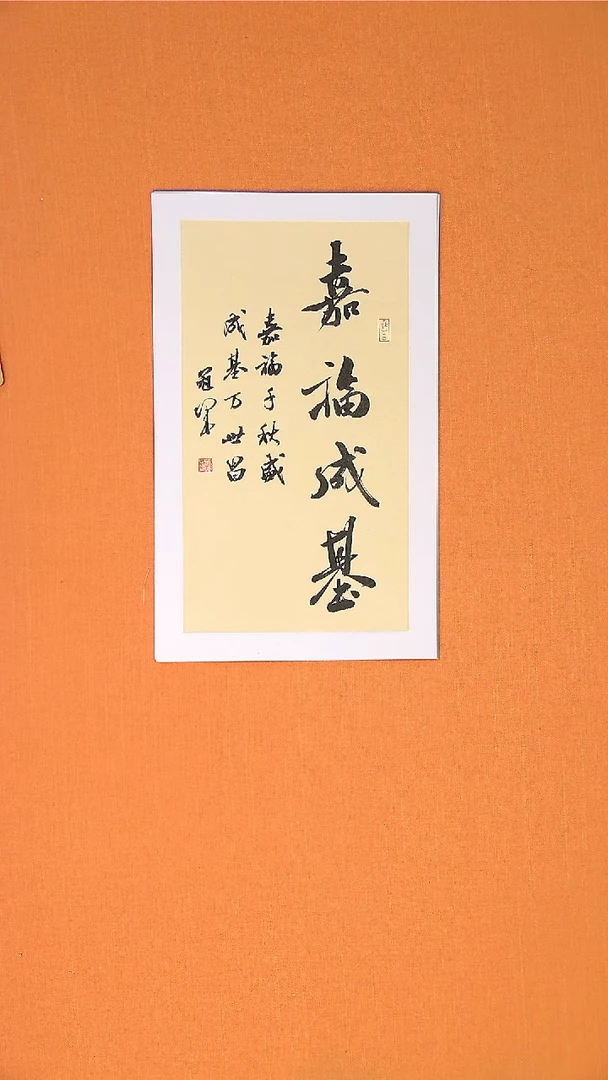 嘉福成基
嘉福千秋盛
成基万世昌